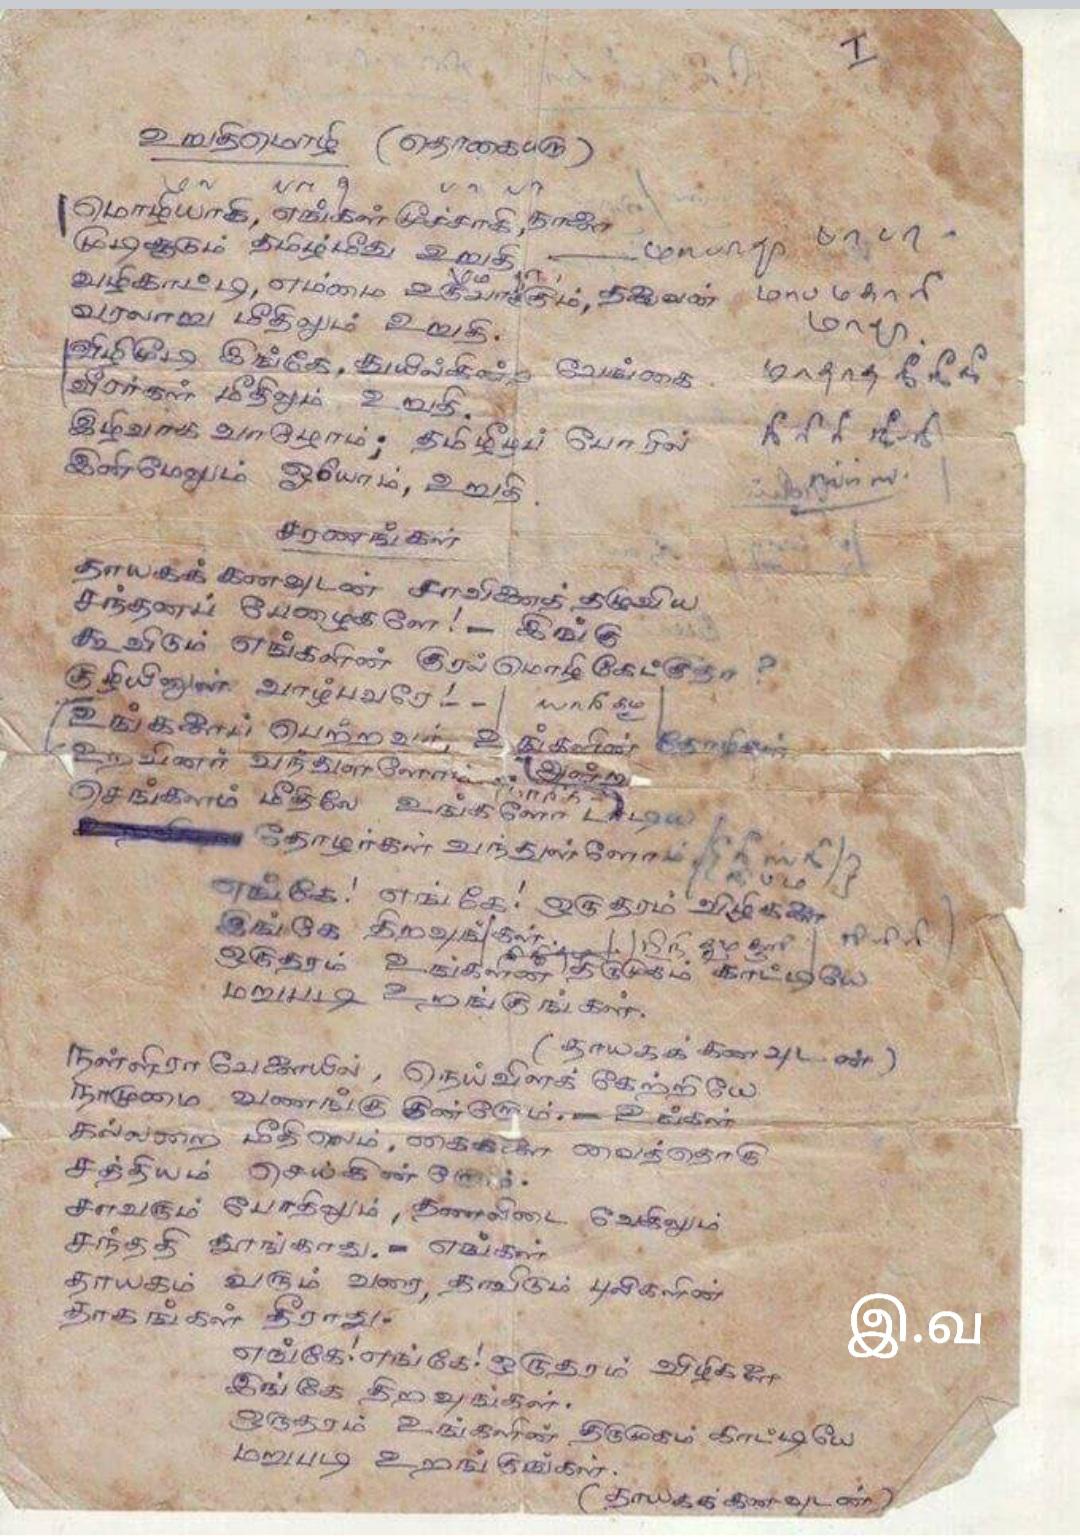 I
உறுதிமொழி (தொகையரு)
மொழியாகி, எங்கள் மூச்சாகி, நாளை
முடிசூடும் தமிழ்மீது உறுதி
வழிகாட்டி, எம்மை உருவாக்கும், தலைவன்
வரலாறு மீதிலும் உறுதி.
விழிமூடி இங்கே, துயில்கின்ற வேங்கை
வீரர்கள் மீதிலும் உறுதி.
இழிவாக வாழோம்; தமிழீழப் போரில்
இனிமேலும் ஓயோம், உறுதி.
சரணங்கள்
தாயகக் கனவுடன் சாவினைத் தழுவிய
சந்தனப் பேழைகளே! - இங்கு
கூவிடும் எங்களின் குரல்மொழி கேட்குதா?
குழியினுள் வாழ்பவரே! -
உங்களைப் பெற்றவர், உங்களின் தோழிகள்
உறவினர் வந்துள்ளோம் அன்று
செங்களம் மீதிலே உங்களோ டாடிய
தோழர்கள் வந்துள்ளோம்
எங்கே! எங்கே! ஒருதரம் விழிகளை
இங்கே திறவுங்கள்
ஒருதரம் உங்களின் திருமுகம் காட்டியே
மறுபடி உறங்குங்கள்.
(தாயகக் கனவுடன்)
நள்ளிரா வேளையில், நெய்விளக் கேற்றியே
நாமுமை வணங்கு கின்றோம். - உங்கள்
கல்லறை மீதிலெம், கைகளை வைத்தொரு
சத்தியம் செய்கின்றோம்.
சாவரும் போதிலும், தணலிடை வேகிலும்
சந்ததி தூங்காது. - எங்கள்
தாயகம் வரும் வரை, தாவிடும் புலிகளின்
தாகங்கள் தீராது.
இ.வ
எங்கே! எங்கே! ஒருதரம் விழிகளை
இங்கே திறவுங்கள்.
ஒருதரம் உங்களின் திருமுகம் காட்டியே
மறுபடி உறங்குங்கள்.
(தாயகக்கனவுடன்)